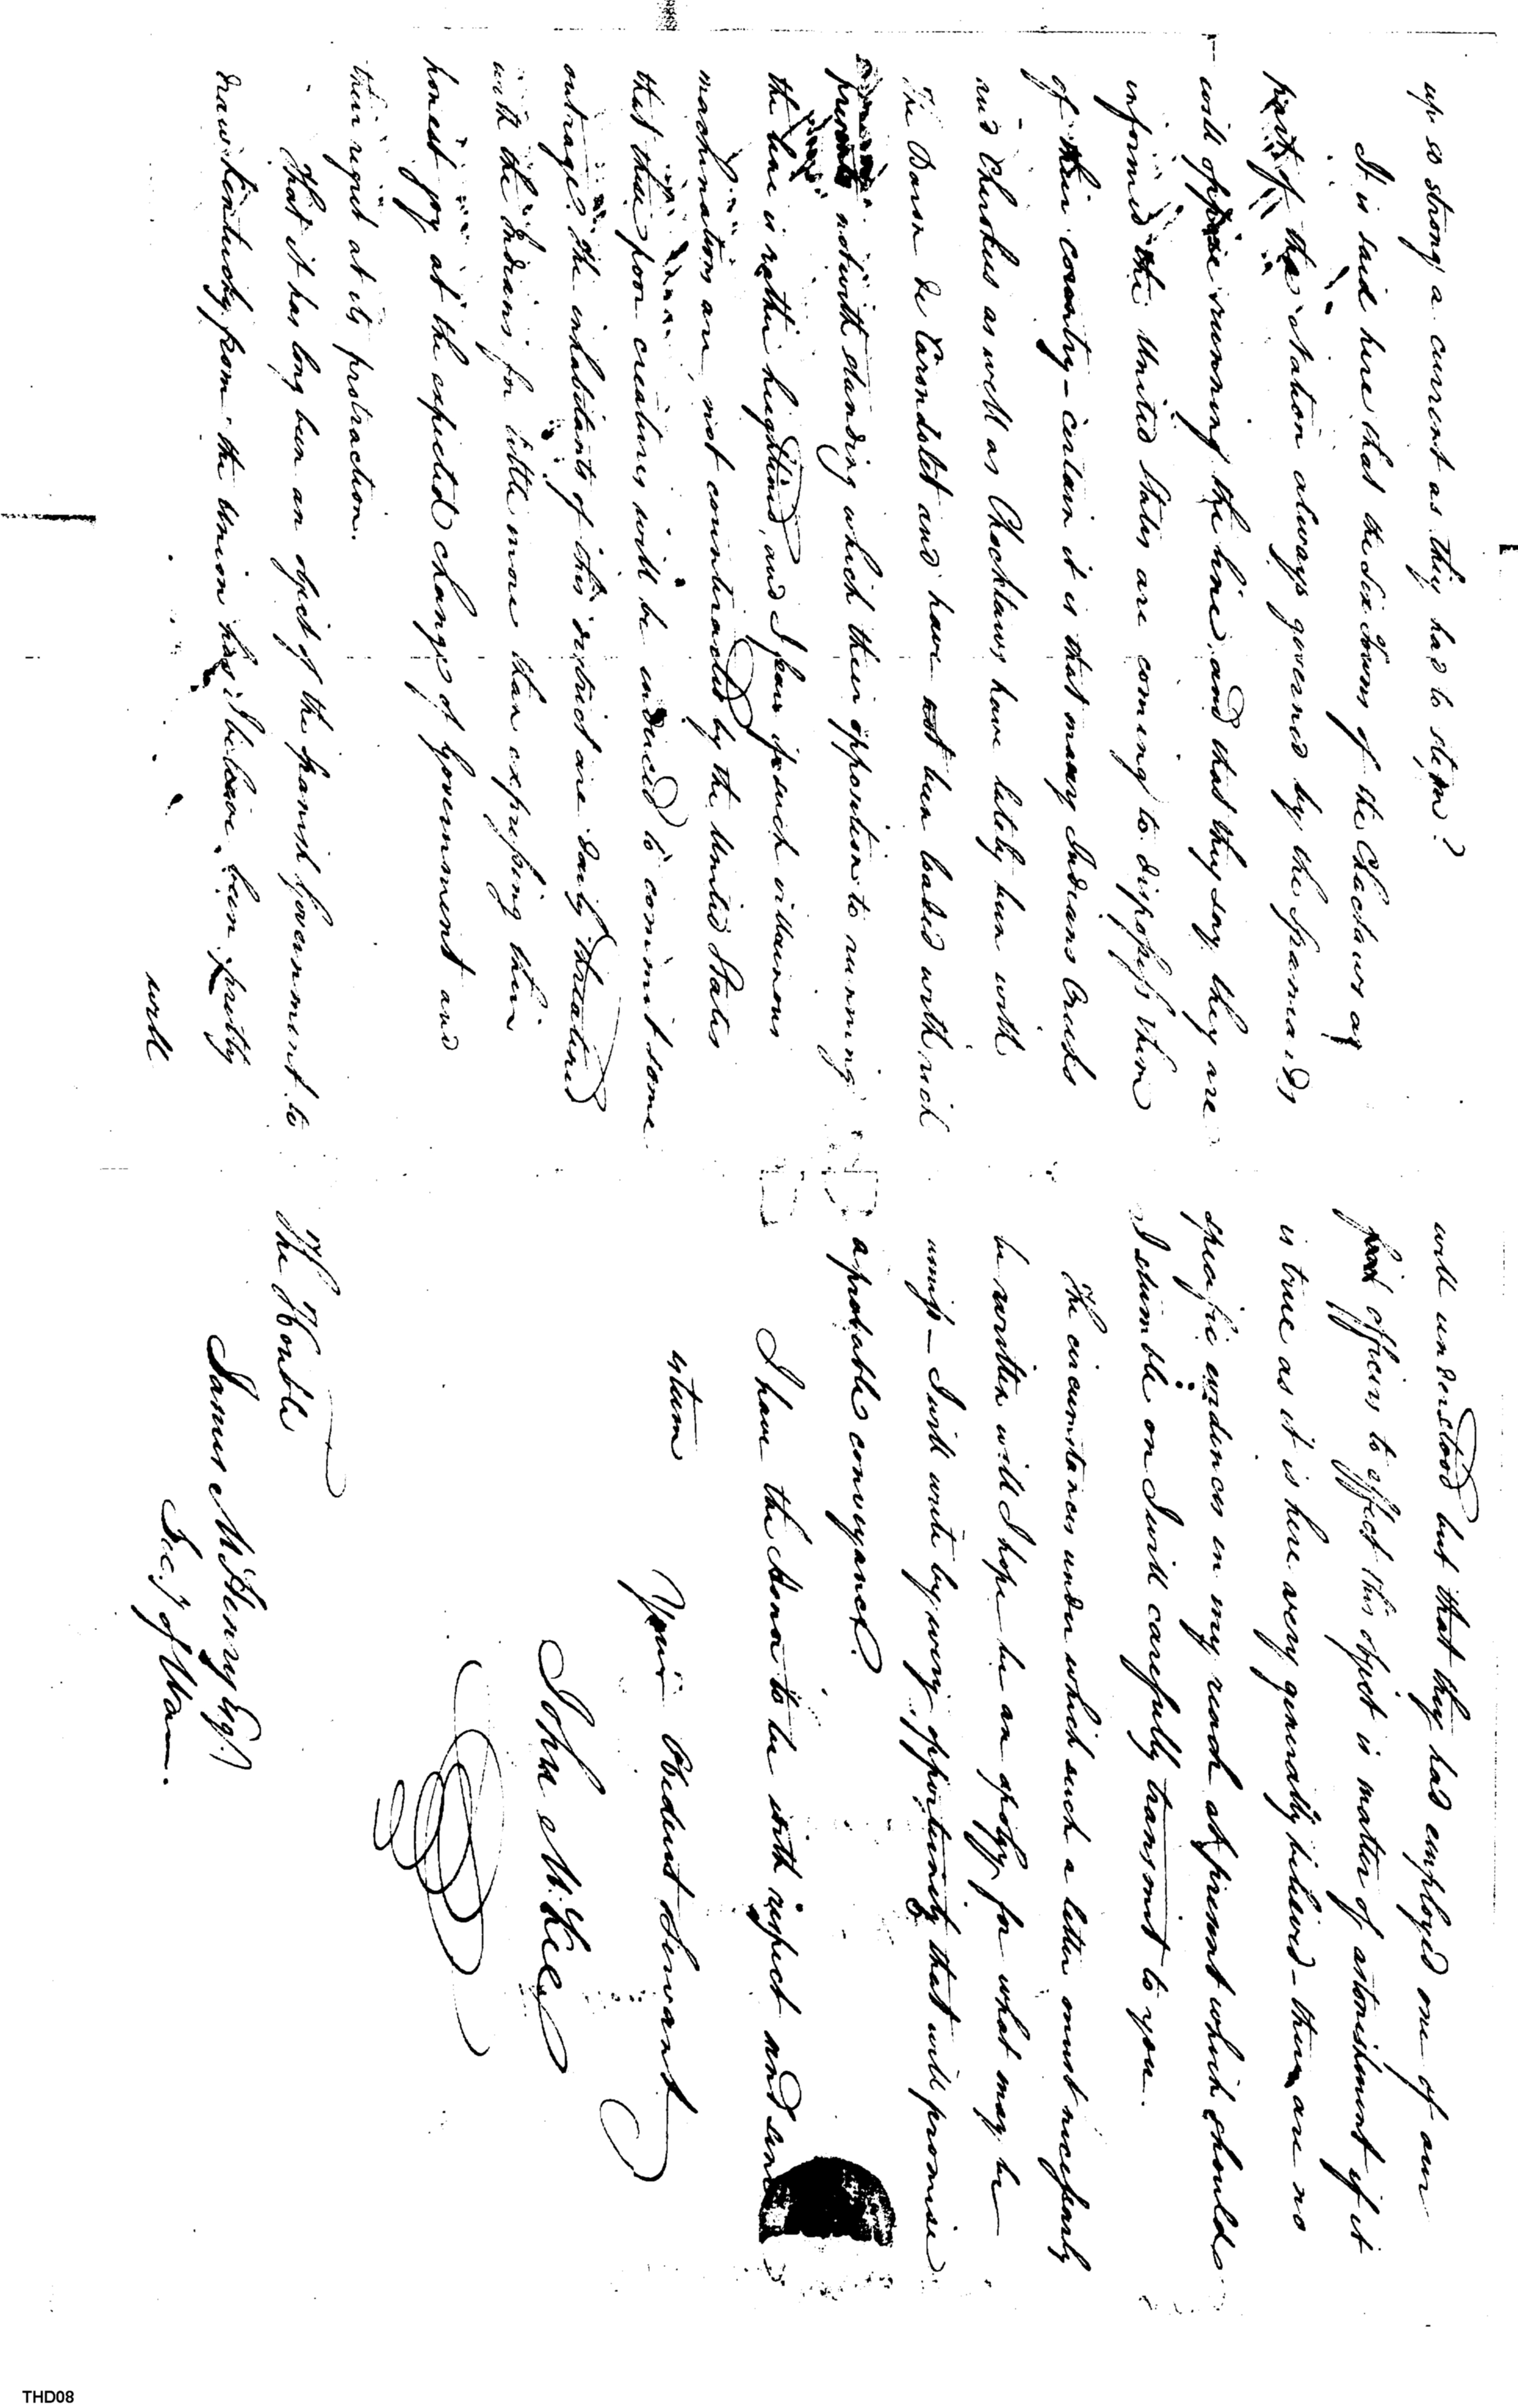 up so strong a current as they had to stem?
It is said here that the Six Towns of the Chactaws a
part of the Nation always governed by the Spaniards
will oppose running the line, and that they say they are
informed the United States are coming to dispossess them
of their country — certain it is that many Indians Creeks
and Cherokees as well as Chocktaws have lately been with
The Baron de Carondolet and have not been loaded with rich
presents notwithstanding which their opposition to running
the line is rather heightened, and I fear if such villainous
machinations are, not counteracted by the United States
that these poor creatures will be induced to commit some
outrage. The inhabitants of this district are daily threatened
with the Indians for little more than expressing their
honest joy at the expected change of Government and
their regret at its protraction.
That it has long been an object of the Spanish Government to
draw Kentucky from the Union has I beleave been pretty
well
well understood but that they had employed one of our
officers to effect this object is matter of astonishment if it
is true as it is here very generally believed — there are no
specific evidences in my reach at present which should
I stumble on I will carefully transmit to you.
The circumstances under which such a letter must necessarly
be written will I hope be an apology for what may be
amiss — I will write by every opportunity that will promise
a probable conveyance.
I have the honor to be with respect and
esteem
Your Obedient Servant
John McKee
The Honble
James McHenry Esq.
Secy of War.
THD08